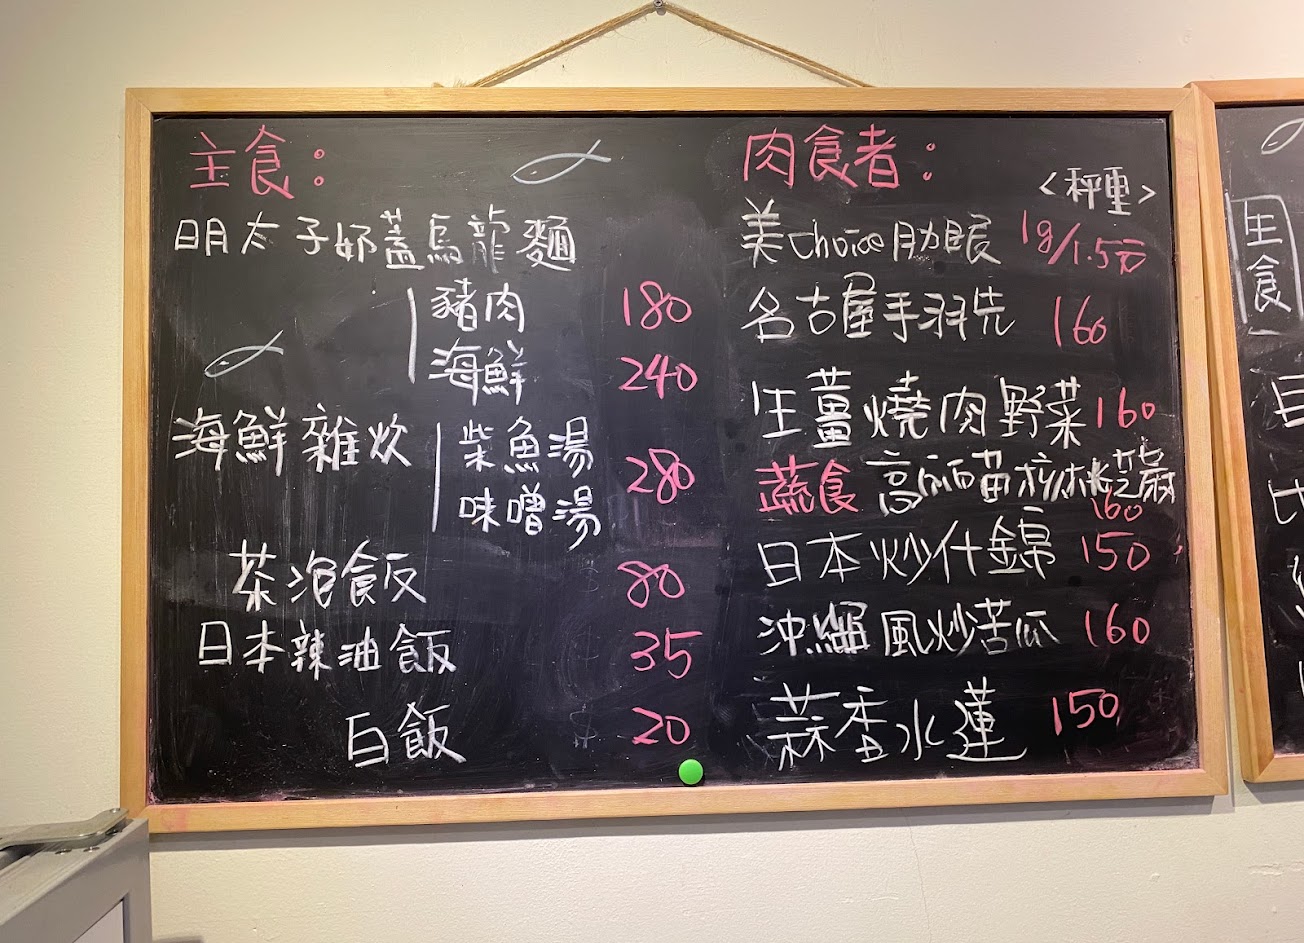 主食：
明太子奶蓋烏龍麵
豬肉 180
海鮮 240
海鮮雜炊 柴魚湯 280
味噌湯
茶泡飯 80
日本辣油飯 35
白飯 $ 20
肉食者：
<秤重>
美Choice肋眼 1g/1.5元
名古屋手羽先 160
生薑燒肉野菜 160
蔬食 高麗苗
160
日本炒什錦 150
沖繩風炒苦瓜 160
蒜香水蓮 150
生食